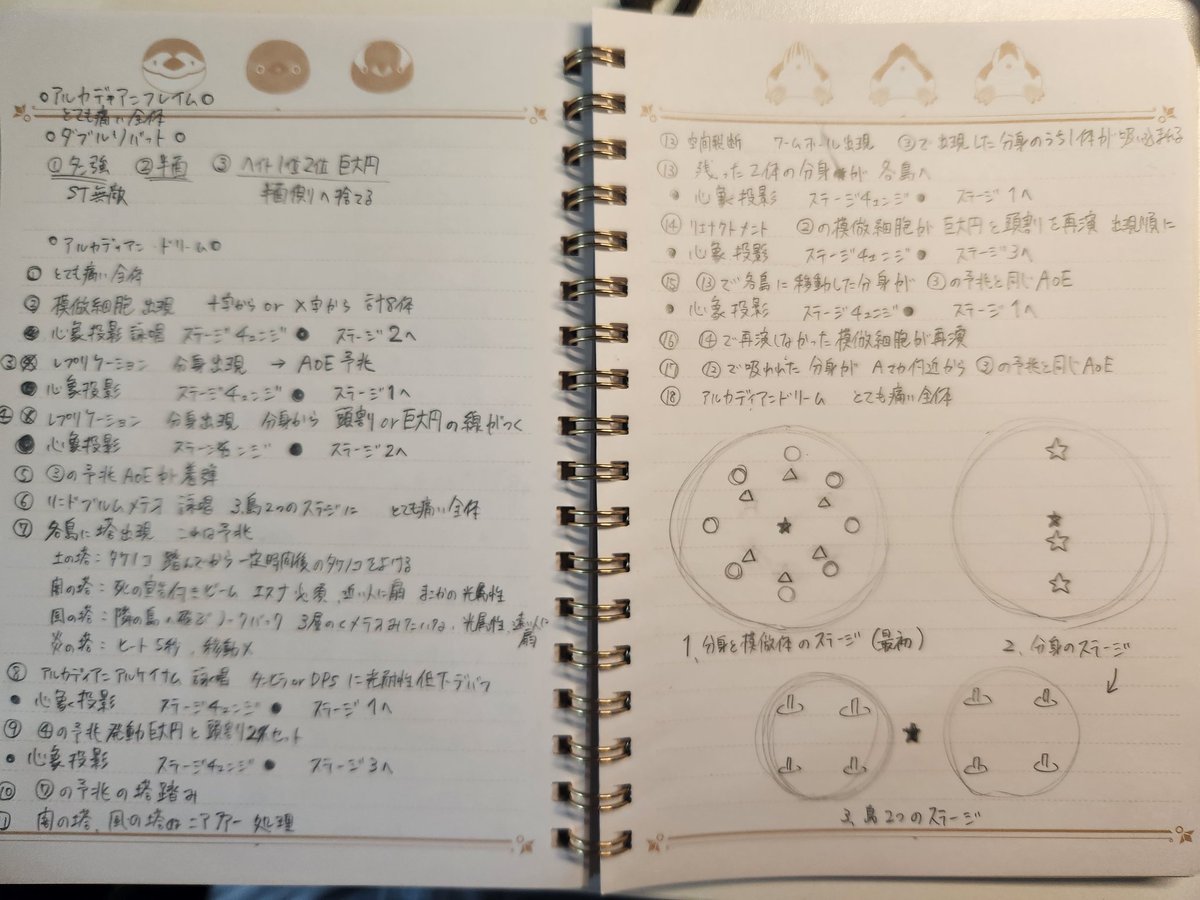 ○アルカディアンフレイム○
とても痛い全体
○ダブルソバット○
①名強 ②半面 ③ヘイト1位2位 巨大円
ST無敵 半面側へ捨てる
○アルカディアンドリーム○
① とても痛い全体
② 模倣細胞 出現 十字から or ×字から 計8体
● 心象投影 詠唱 ステージチェンジ ● ステージ2へ
③ レプリケーション 分身出現 → AoE予兆
● 心象投影 ステージチェンジ ● ステージ1へ
④ レプリケーション 分身出現 分身から 頭割 or 巨大円の線がつく
● 心象投影 ステージチェンジ ● ステージ2へ
⑤ ③の予兆AoEが着弾
⑥ リンドブルムメテオ 詠唱 3.島2つのステージに とても痛い全体
⑦ 各島に塔出現 これは予兆
土の塔:タケノコ 踏んでから一定時間後のタケノコをよける
闇の塔:死の宣告付きビーム エスナ必須 近い人に扇 まこかの光属性
風の塔:隣の島へ飛ぶノックバック 3層のくメテオみたいなの 光属性 遠い人に扇
炎の塔:ヒート5秒、移動×
⑧ アルカディアンアルケイナム 詠唱 タンヒラorDPSに光耐性低下デバフ
● 心象投影 ステージチェンジ ● ステージ1へ
⑨ ④の予兆発動巨大円と頭割2セット
● 心象投影 ステージチェンジ ● ステージ3へ
⑩ ⑦の予兆の塔踏み
⑪ 闇の塔、風の塔の ニアファー 処理
⑫ 空間裂断 ワームホール出現 ③で出現した分身のうち1体が吸い込まれる
⑬ 残った2体の分身が 各島へ
● 心象投影 ステージチェンジ ● ステージ1へ
⑭ リエナクトメント ②の模倣細胞が 巨大円と頭割を再演 出現順に
● 心象投影 ステージチェンジ ● ステージ3へ
⑮ ⑬で各島に移動した分身が ③の予兆と同じAoE
● 心象投影 ステージチェンジ ● ステージ1へ
⑯ ⑭で再演しなかった模倣細胞が再演
⑰ ⑫で吸われた分身が Aマカ付近から ③の予兆と同じAoE
⑱ アルカディアンドリーム とても痛い全体
1、分身と模倣体のステージ(最初)
2、分身のステージ
3、島2つのステージ